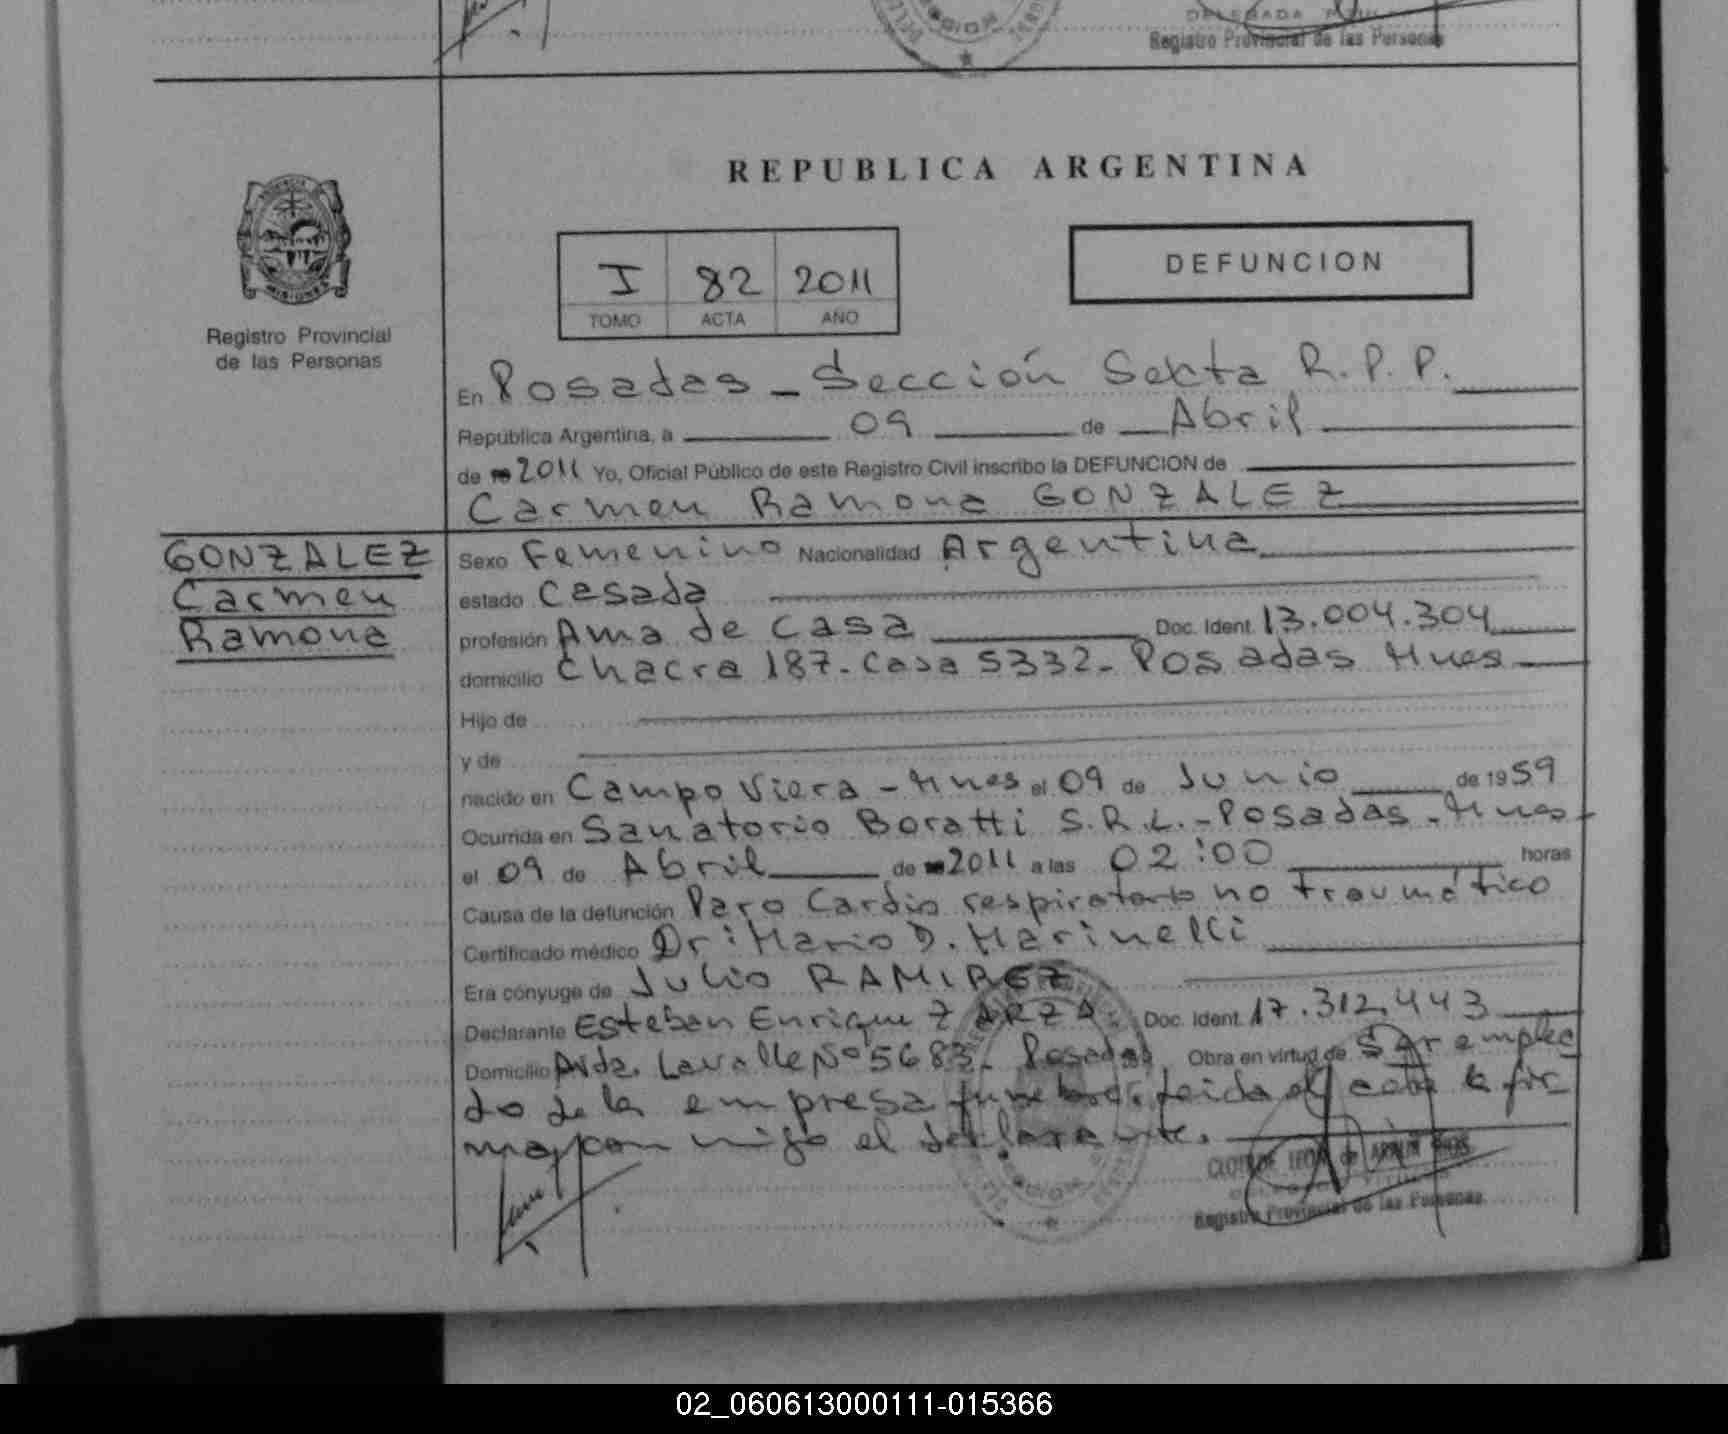 DELEGADA
Registro Provincial de las Personas
REPUBLICA ARGENTINA
MISIONES
Registro Provincial
de las Personas
I 82 2011
TOMO ACTA AÑO
DEFUNCION
En Posadas - Sección Sexta R.P.P.
República Argentina, a 09 de Abril
de 2011 Yo, Oficial Público de este Registro Civil inscribo la DEFUNCION de
Carmen Ramona GONZALEZ
GONZALEZ
Carmen
Ramona
Sexo Femenino Nacionalidad Argentina
estado Casada
profesión Ama de casa Doc. Ident. 13.004.304
domicilio Chacra 187- Casa 5332- Posadas Mnes
Hijo de
y de
nacido en Campo Viera - Mnes el 09 de Junio de 1959
Ocurrida en Sanatorio Boratti S.R.L.- Posadas - Mnes
el 09 de Abril de 2011 a las 02:00 horas
Causa de la defunción Paro Cardio respiratorio no traumático
Certificado médico Dr: Mario D. Marinelli
Era cónyuge de Julio RAMIREZ
Declarante Esteban Enrique ZARZA. Doc. Ident. 17.312.443
Domicilio Avda. Lavalle Nº 5683- Posadas Obra en virtud de Ser emplea
do de la empresa funebre. Leida el acta la fir
ma con migo el declarante.
Registro Provincial de las Personas
02_060613000111-015366